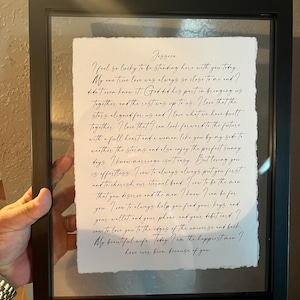 Jessica
I feel so lucky to be standing here with you today.
My one true love was always so close to me and I
didn't even know it. God did his part in bringing us
together and the rest was up to us. I love that the
stars aligned for us and I love what we have built
together. I love that I can look forward to the future
with a full heart and a life like you by my side to
weather the storms and also enjoy the perfect sunny
days. I know marriage isn't easy. But loving you
is effortless. I vow to always always put you first
and to cherish our eternal bond. I vow to be the man
that you deserve and the man I know I can be for
you. I vow to always help you find your keys, and
your wallet and your phone and your debit card. I
vow to love you to the edges of the universe and back.
My beautiful wife. Today I am the happiest man I
have ever been because of you.